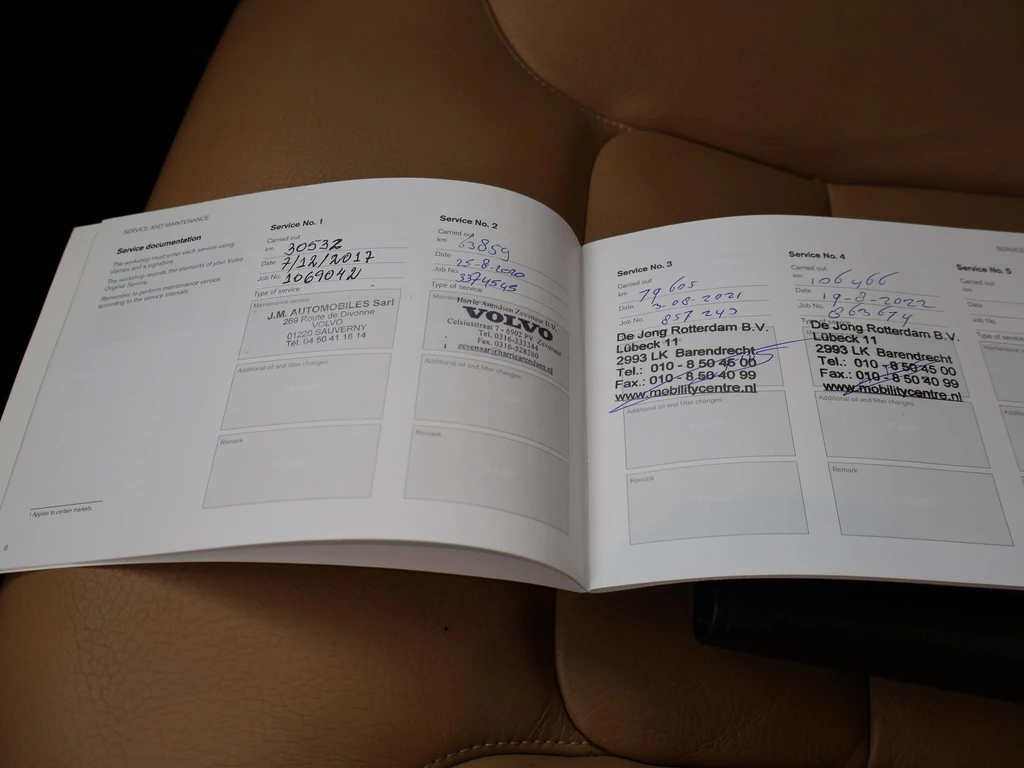 SERVICE AND MAINTENANCE
Service documentation
The workshop must enter each service using
stamps and a signature.
The workshop records the elements of your Volvo
Original Service.
Remember to perform maintenance service
according to the service intervals.
1 Applies to certain markets
6
Service No. 1
Carried out
km 30532
Date 7/12/2017
Job No. 1069042
Type of service
Maintenance service
J.M. AUTOMOBILES Sarl
269 Route de Divonne
VOLVO
01220 SAUVERNY
Tél. 04 50 41 18 14
Additional oil and filter changes
Remark
Service No. 2
Carried out
km 63859
Date 25-8-2020
Job No. 3374545
Type of service
Harrie Arendsen Zevenaar B.V.
VOLVO
Celsiusstraat 7 - 6902 PV Zevenaar
Tel. 0316-333344
Fax. 0316-528380
zevenaar@harriearendsen.nl
Additional oil and filter changes
Remark
Service No. 3
Carried out
km 79605
Date 2-08-2021
Job No. 857243
De Jong Rotterdam B.V.
Lübeck 11
2993 LK Barendrecht
Tel.: 010 - 8 50 45 00
Fax.: 010 - 8 50 40 99
www.mobilitycentre.nl
Additional oil and filter changes
Remark
Service No. 4
Carried out
km 106466
Date 19-8-2022
Job No. 863674
De Jong Rotterdam B.V.
Lübeck 11
2993 LK Barendrecht
Tel.: 010 - 8 50 45 00
Fax.: 010 - 8 50 40 99
www.mobilitycentre.nl
Additional oil and filter changes
Remark
Service No. 5
Carried out
km
Date
Job No.